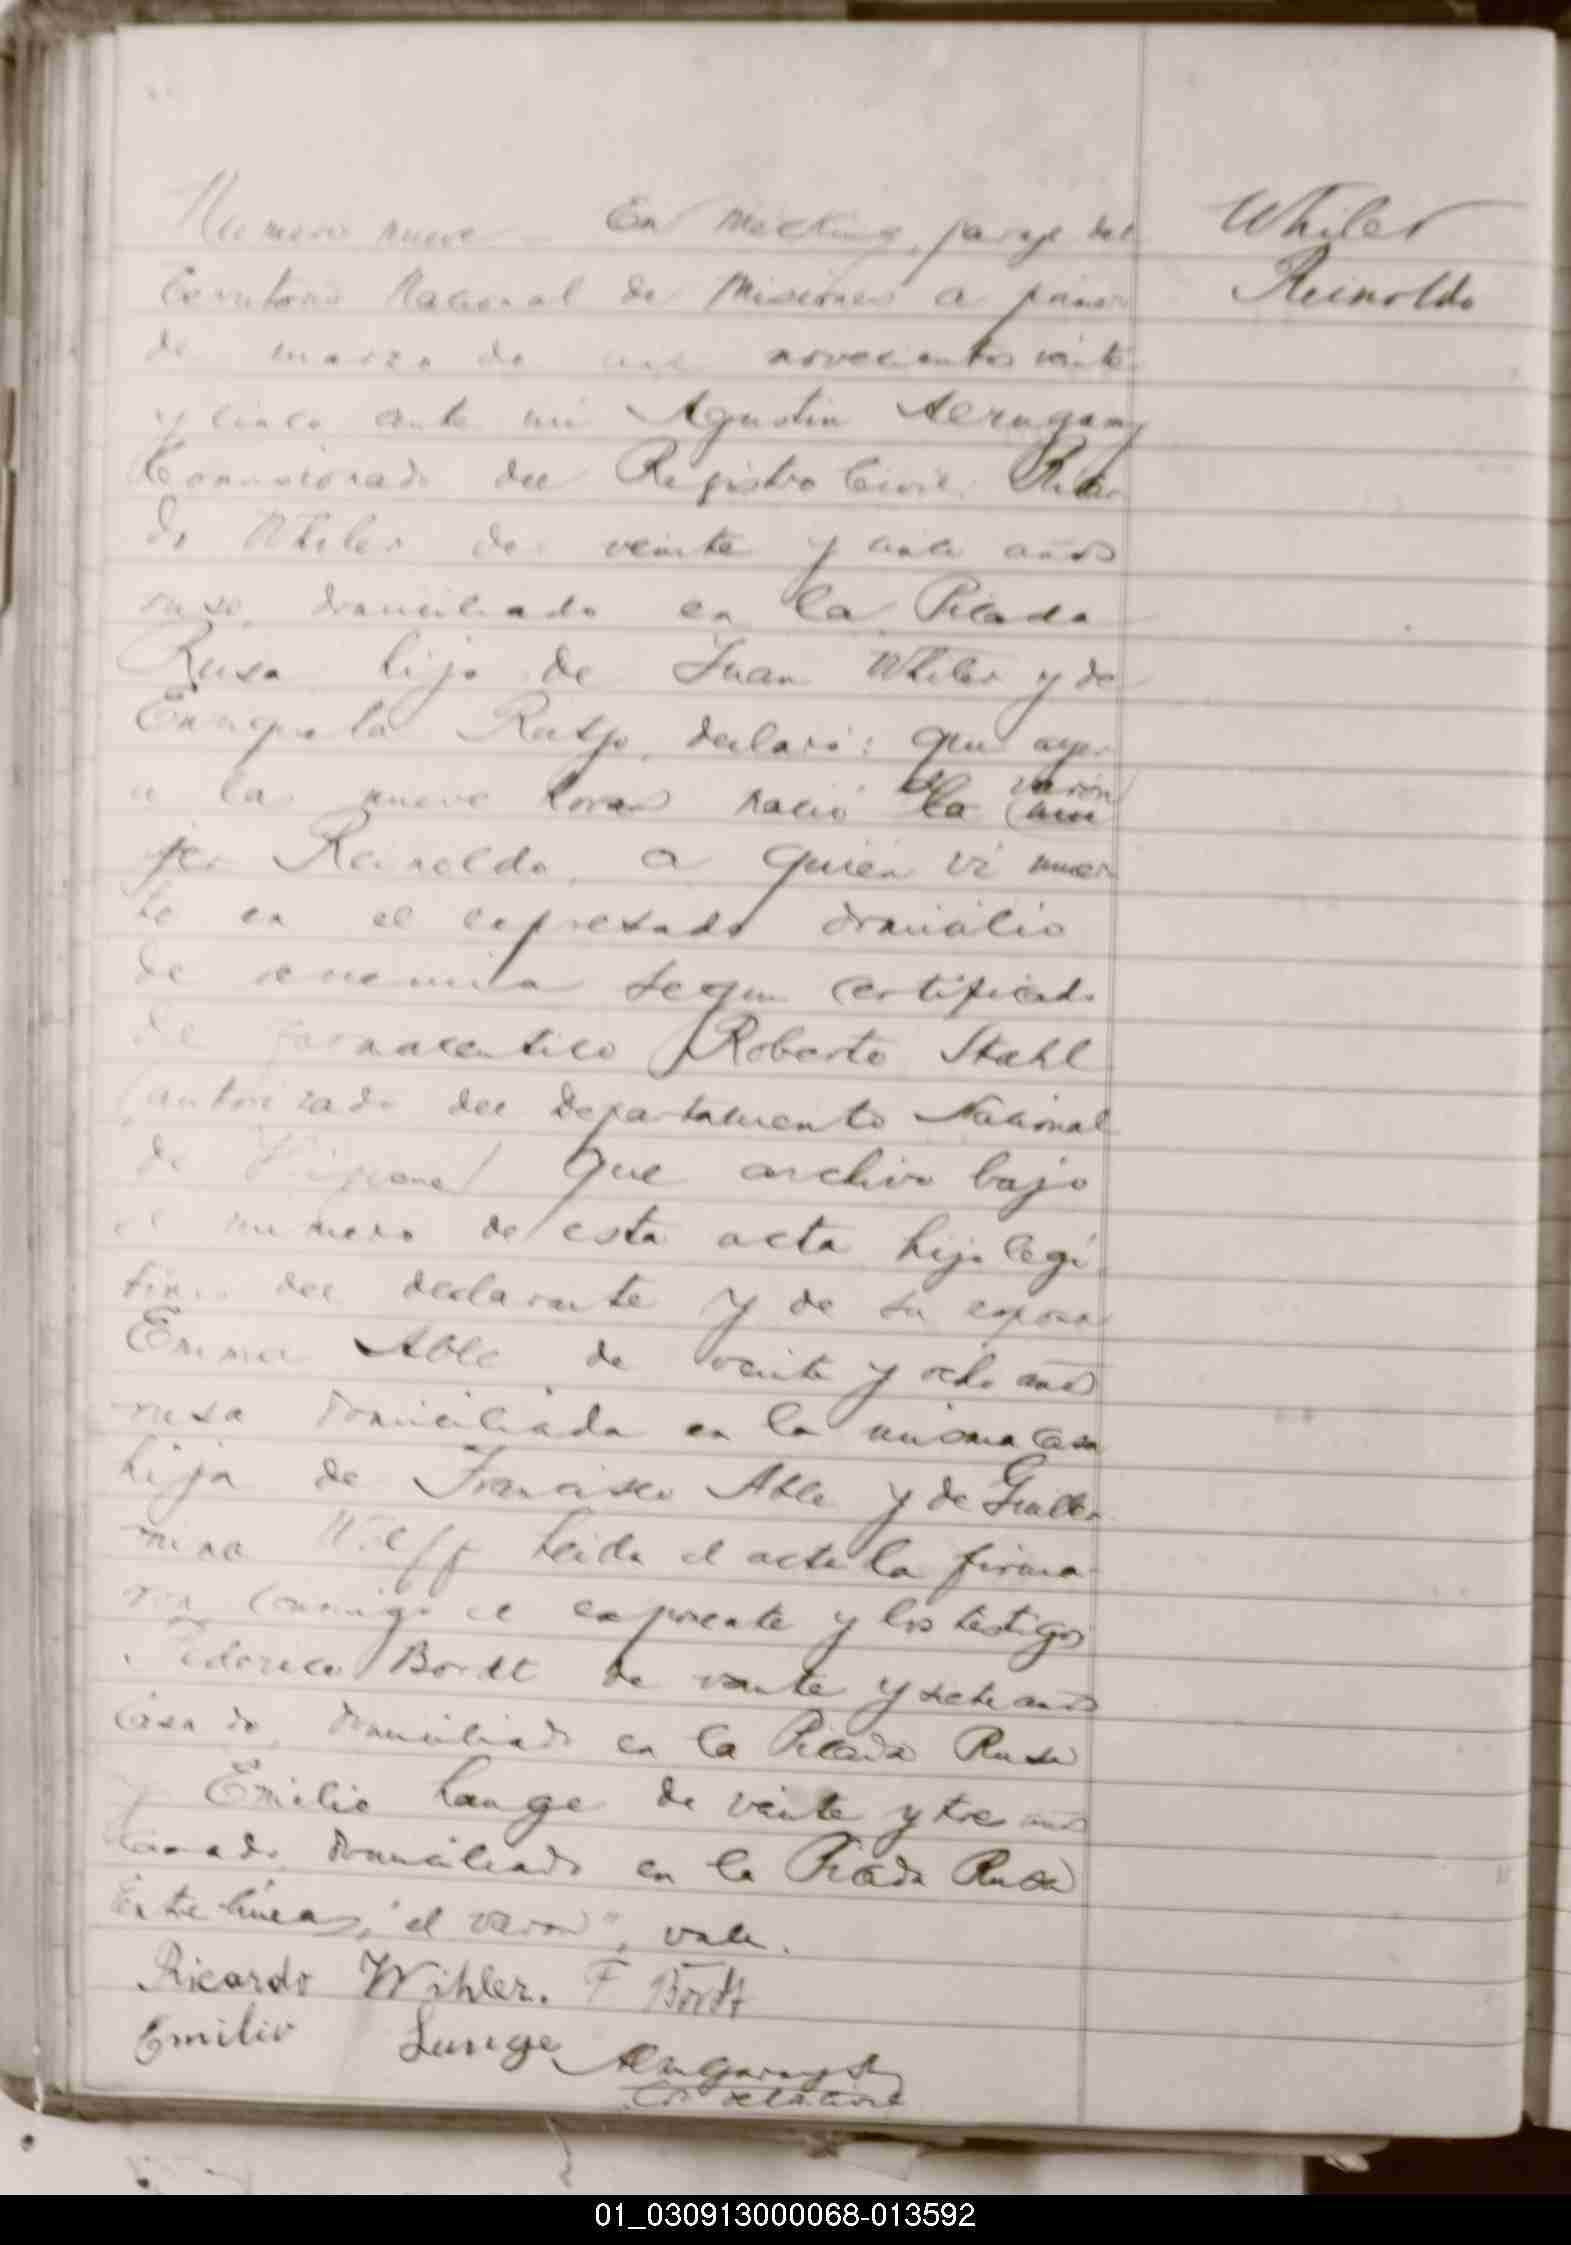 Whiler
Reinoldo
Numero nueve En Mecking, paraje del
Territorio Nacional de Misiones a primero
de marzo de mil novecientos veinte
y cinco ante mi Agustin
Comisionado del Registro Civil, Ricar
do Whiler de veinte y años
ruso, domiciliado en la Picada
Rusa hijo de Juan Whiler y de
Enriqueta declaró: que ayer
a las nueve horas nació el varón
la (mu
jer Reinoldo, a quién ví muer
to en el expresado domicilio
de segun certificado
de farmaceutico Roberto Stahl
(autorizado del Departamento Nacional
de Higiene) que archivo bajo
el numero de esta acta hijo legi
timo del declarante y de su esposa
Emma Able de veinte y ocho años
rusa domiciliada en la misma casa
hija de Francisco Able y de Guiller
mina Wolff Leida el acta la firma
ron conmigo el exponente y los testigos
Federico Bordt de veinte y siete años
casado, domiciliado en la Picada Rusa
y Emilio Lange de veinte y tres años
casado, domiciliado en la Picada Rusa
Entre lineas, "el varon", vale.
Ricardo Wihler. F Bordt
Emilio Lange
01_030913000068-013592